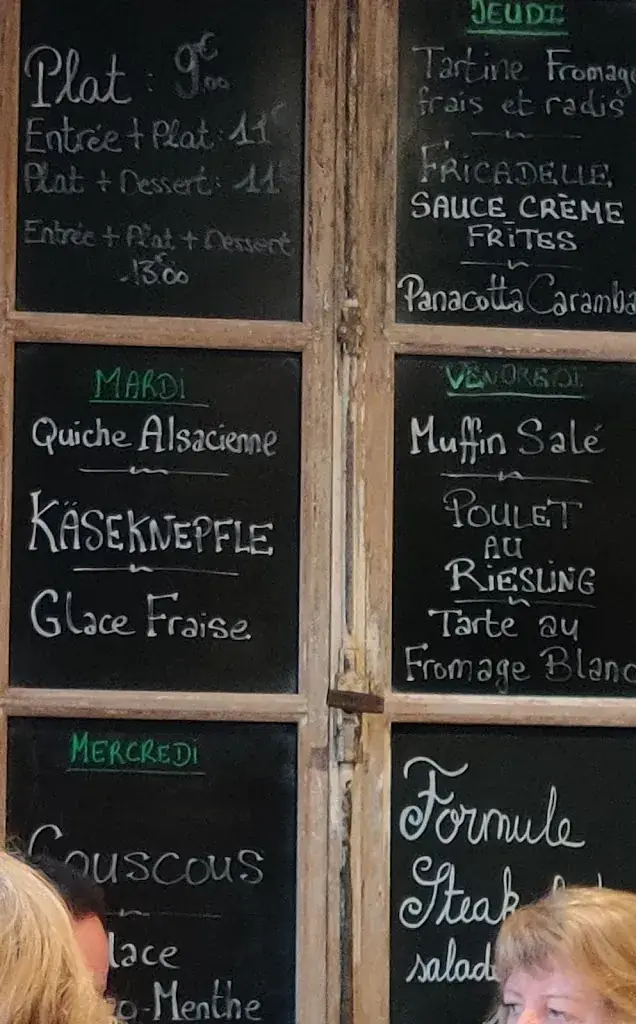 Plat : 9€.00
Entrée + Plat : 11€
Plat + Dessert : 11€
Entrée + Plat + Dessert
13€00
MARDI
Quiche Alsacienne
KÄSEKNEPFLE
Glace Fraise
MERCREDI
Couscous
lace
o-Menthe
JEUDI
Tartine Fromage
frais et radis
FRICADELLE
SAUCE CRÈME
FRITES
Panacotta Caramba
VENDREDI
Muffin Salé
POULET
AU
RIESLING
Tarte au
Fromage Blanc
Formule
Steak
salade